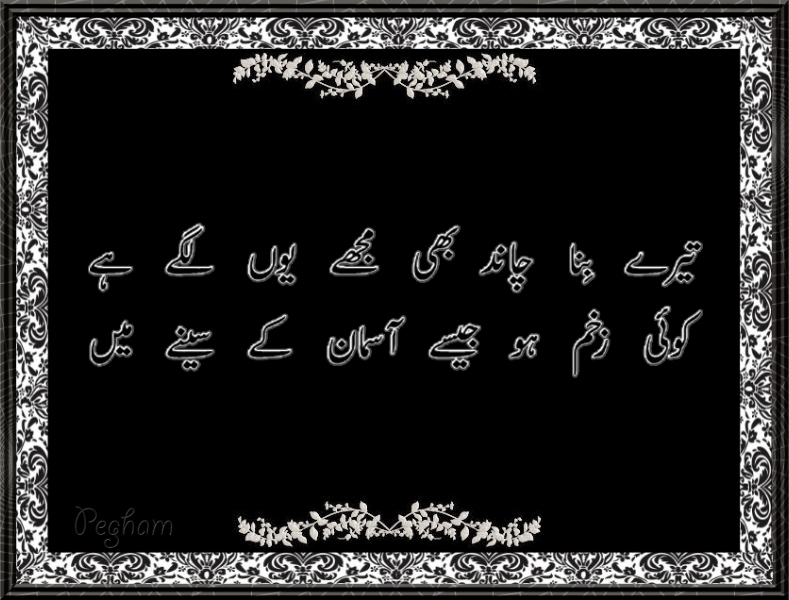 تیرے بِنا چاند بھی مجھے یوں لگے ہے
کوئی زخم ہو جیسے آسمان کے سینے میں
Pegham